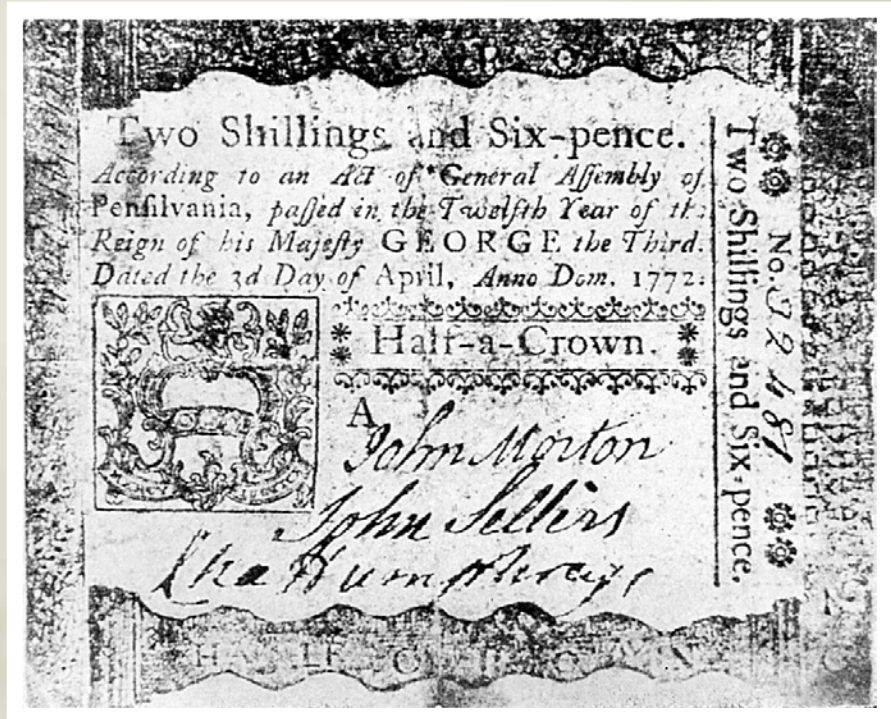 Two Shillings and Six-pence.
According to an Act of General Assembly of
Pensilvania, passed in the Twelfth Year of the
Reign of his Majesty GEORGE the Third.
Dated the 3d Day of April, Anno Dom. 1772.
Half-a-Crown.
A
John Morton
John Sellers
Cha Humphreys
No.
Two Shillings and Six-pence.
HALF CROWN